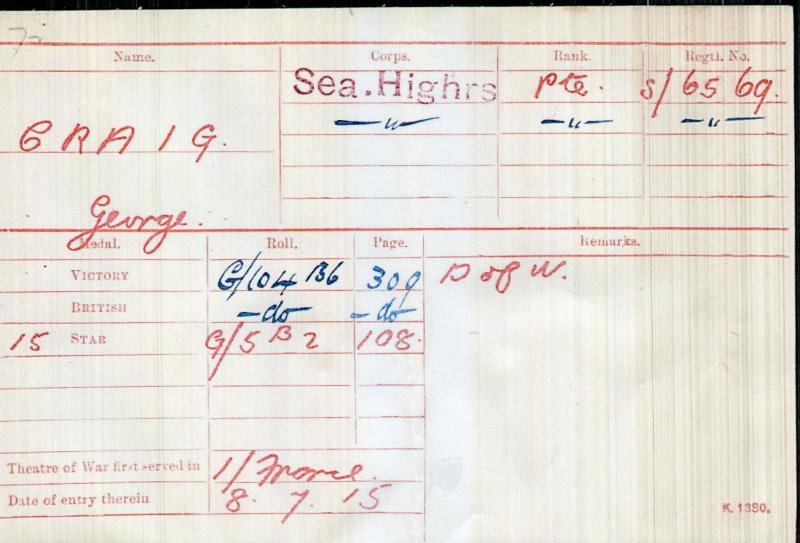 Name. Corps. Rank. Regtl. No.
Sea. Highrs Pte. S/6569.
CRAIG. —"— —"— —"—
George.
Medal. Roll. Page. Remarks.
VICTORY G/104 B6 309 D of W.
BRITISH -do- -do-
15 STAR G/5 B2 108.
Theatre of War first served in 1/ France.
Date of entry therein 8. 7. 15
K. 1380.